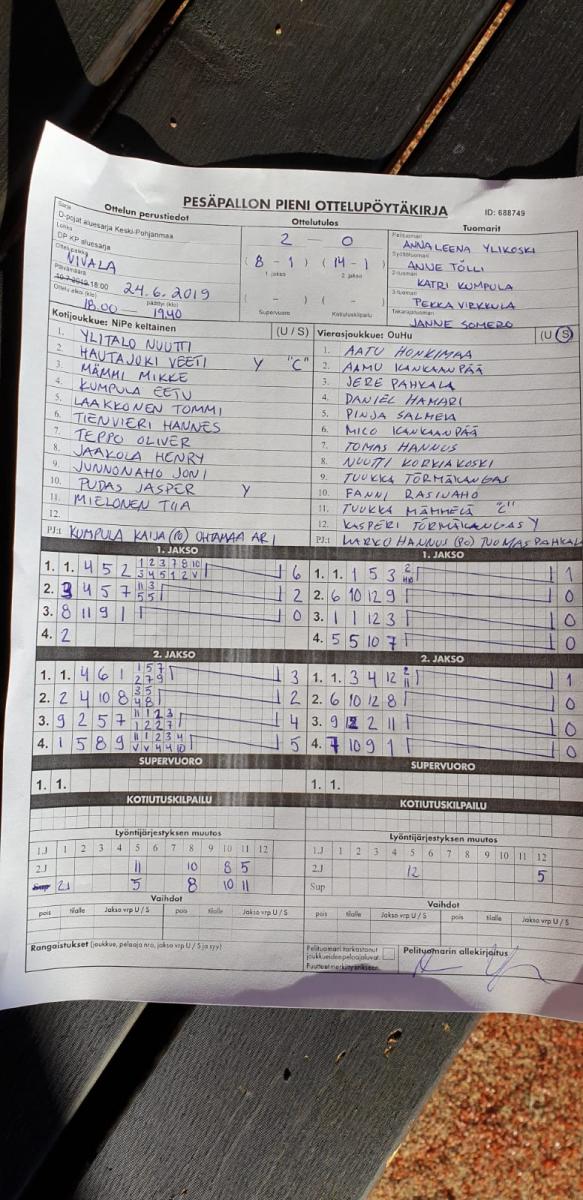 PESÄPALLON PIENI OTTELUPÖYTÄKIRJA
ID: 688749
Ottelun perustiedot
Sarja
D-pojat aluesarja Keski-Pohjanmaa
Lohko
DP KP aluesarja
Ottelupaikka
NIVALA
Päivämäärä
10.7.2019 18:00 24.6.2019
Ottelu alkoi (klo) päättyi (klo)
18.00 19.40
Ottelutulos
2 - 0
( 8 - 1 ) ( 14 - 1 )
1. jakso 2. jakso
( - ) -
Supervuoro Kotiutuskilpailu
Tuomarit
Pelituomari
ANNALEENA YLIKOSKI
Syöttötuomari
ANNE TÖLLI
2-tuomari
KATRI KUMPULA
3-tuomari
PEKKA VIRKKULA
Takarajatuomari
JANNE SOMERO
Kotijoukkue: NiPe keltainen (U / S)
1. YLITALO NUUTTI
2. HAUTAJOKI VEETI Y "C"
3. MÄMMI MIKKE
4. KUMPULA EETU
5. LAAKKONEN TOMMI
6. TIENVIERI HANNES
7. TEPPO OLIVER
8. JAAKOLA HENRY
9. JUNNONAHO JONI
10. PUDAS JASPER Y
11. MIELONEN TIIA
12.
PJ:t KUMPULA KAIJA OHTAMAA ARI
Vierasjoukkue: OuHu (U / S)
1. AATU HONKIMAA
2. AAMU KANKAANPÄÄ
3. JERE PAHKALA
4. DANIEL HAMARI
5. PINJA SALMELA
6. MICO KANKAANPÄÄ
7. TOMAS HANNUS
8. NUUTTI KORKIAKOSKI
9. TUUKKA TÖRMÄKANGAS
10. FANNI RASINAHO
11. TUUKKA MÄMMELÄ "C"
12. KASPERI TÖRMÄKANGAS Y
PJ:t MARKO HANNUS (PO) TUOMAS PAHKALA
1. JAKSO
1. 1. 4 5 2 1 2 3 7 8 10 6
3 4 5 1 2 V
2. 3 4 5 7 11 3 2
5 5
3. 8 11 9 1 0
4. 2
1. JAKSO
1. 1. 1 5 3 2 1
2. 6 10 12 9 0
3. 1 1 12 3 0
4. 5 5 10 7 0
2. JAKSO
1. 1. 4 6 1 1 5 7 3
2 7 9
2. 2 4 10 8 3 5 2
4 8
3. 9 2 5 7 11 1 2 3 4
1 2 2 7
4. 1 5 8 9 11 1 2 3 4 5
V V 4 4 10
2. JAKSO
1. 1. 3 4 12 2 1
11
2. 6 10 12 8 0
3. 9 12 2 11 0
4. 7 10 9 1 0
SUPERVUORO
1. 1.
SUPERVUORO
1. 1.
KOTIUTUSKILPAILU
KOTIUTUSKILPAILU
Lyöntijärjestyksen muutos
1.J 1 2 3 4 5 6 7 8 9 10 11 12
2.J 11 10 8 5
Sup 2J 5 8 10 11
Lyöntijärjestyksen muutos
1.J 1 2 3 4 5 6 7 8 9 10 11 12
2.J 12 5
Sup
Vaihdot
pois tilalle Jakso vrp U / S pois tilalle Jakso vrp U / S
Vaihdot
pois tilalle Jakso vrp U / S pois tilalle Jakso vrp U / S
Rangaistukset (joukkue, pelaaja nro, jakso vrp U / S ja syy)
Pelituomari tarkastanut
joukkueiden pelaajaluvat.
Puutteet merkitty erikseen.
Pelituomarin allekirjoitus